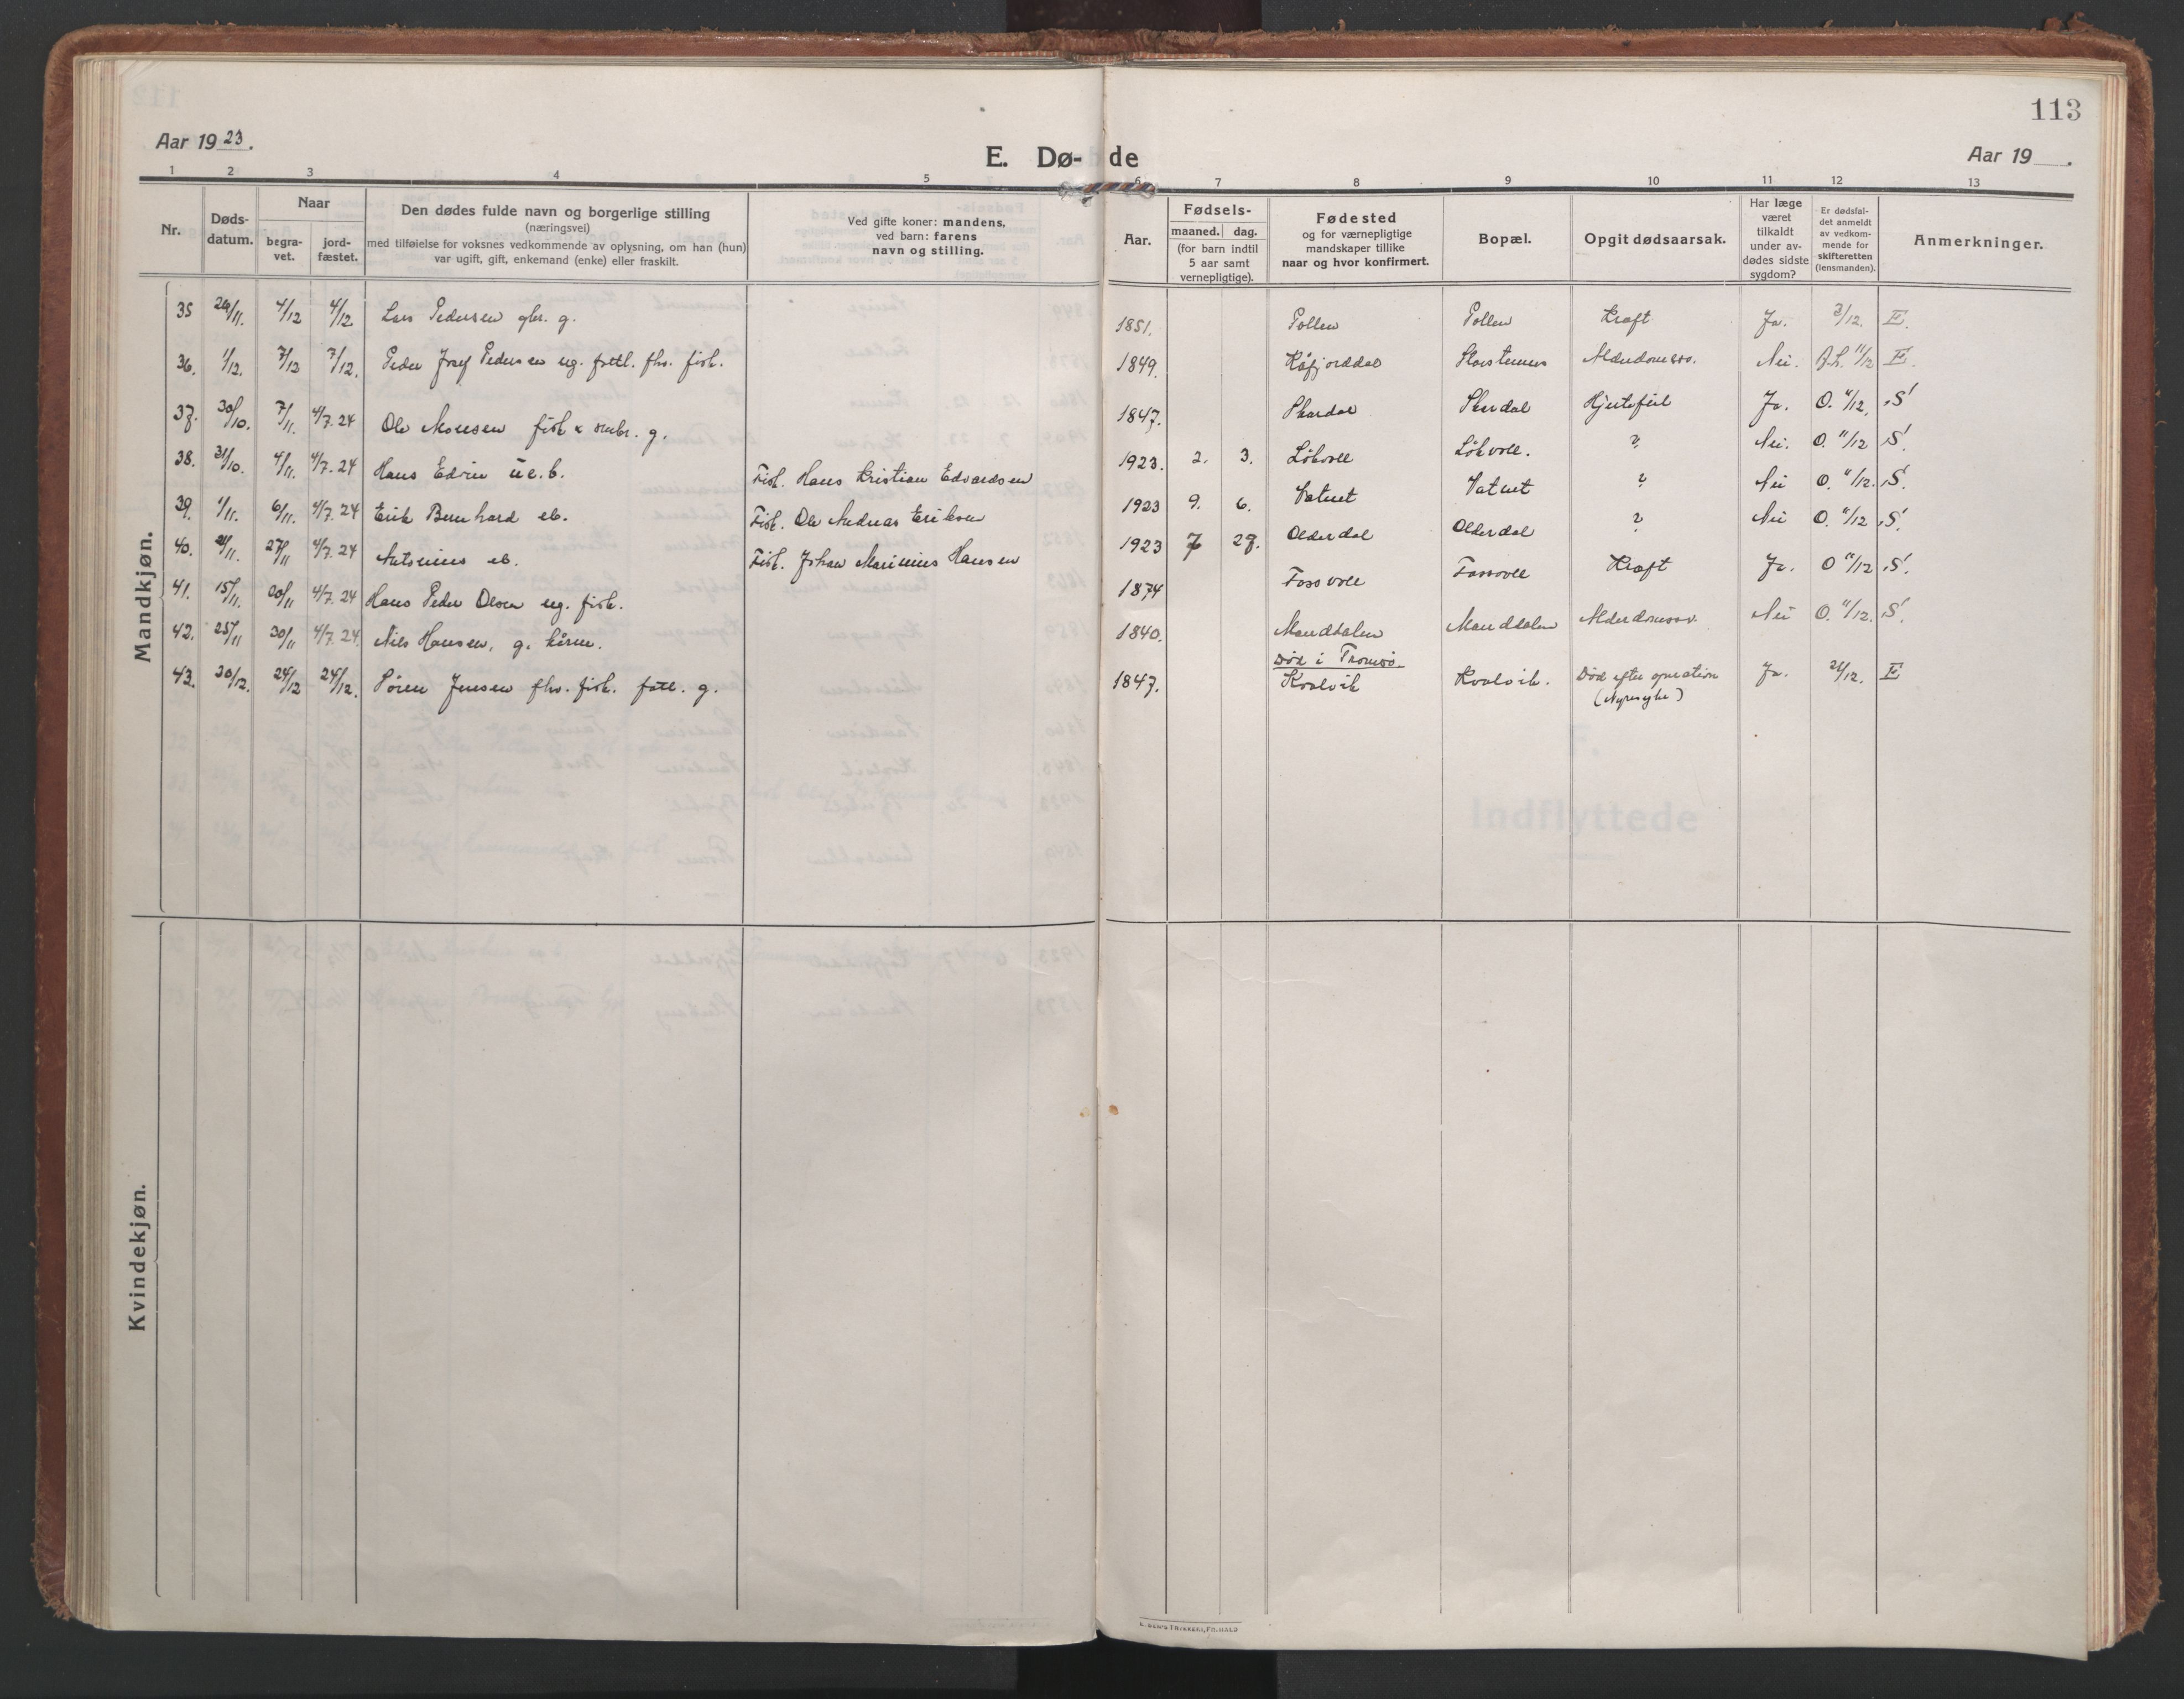 113
Aar 1923.
E. Dø- de
Aar 19 .
1 2 3 4 5 6 7 8 9 10 11 12 13
Nr.
Døds-
datum.
Naar
begra-
vet.
jord-
fæstet.
Den dødes fulde navn og borgerlige stilling
(næringsvei)
med tilføielse for voksnes vedkommende av oplysning, om han (hun)
var ugift, gift, enkemand (enke) eller fraskilt.
Ved gifte koner: mandens,
ved barn: farens
navn og stilling.
Aar.
Fødsels-
maaned. dag.
(for barn indtil
5 aar samt
vernepligtige).
Fødested
og for værnepligtige
mandskaper tillike
naar og hvor konfirmert.
Bopæl.
Opgit dødsaarsak.
Har læge
været
tilkaldt
under av-
dødes sidste
sygdom?
Er dødsfal-
det anmeldt
av vedkom-
mende for
skifteretten
(lensmanden).
Anmerkninger.
Mandkjøn.
35 4/12 4/12 Lars Pedersen gbr. g. 1851. Pollen Pollen Kræft Ja. 3/12. E.
36. 1/12. 7/12 7/12. Peder Josef Pedersen ug. fattl. fhv. fisk. 1849. Kåfjorddal Alderdomssv. Nei. 11/12 E.
37. 30/10. 7/11. 4/7.24 Ole Monsen fisk g. 1847. Skardal Skardal Hjertefeil Ja. O. 11/12. S.
38. 31/10. 4/11. 4/7.24 Hans Edvin u.e.b. Fisk. Hans Kristian Edvardsen 1923. 2. 3. Løkvoll Løkvoll. ? Nei. O. 11/12 S.
39. 1/11. 6/11. 4/7.24 Erik Bernhard eb. Fisk. Ole Andreas Eriksen 1923 9. 6. Vatnet Vatnet ? Nei O. 11/12. S.
40. 21/11. 27/11 4/7.24 eb. Fisk. Johan Marinius Hansen 1923 7 27. Olderdal Olderdal ? Nei O. 11/12 S.
41. 15/11. 20/11 4/7.24 Hans Peder Olsen ug. fisk. 1874 Fossvoll Fossvoll Kræft Ja. O 11/12 S.
42. 25/11 30/11 4/7.24 Nils Hansen, g. kårm. 1840. Manddalen Manddalen Alderdomssv. Nei O. 11/12. S.
43. 20/12. 24/12 24/12. Sören Jensen fhv. fisk. fatl. g. 1847. Död i Tromsö.
Kvalvik Kvalvik. Död efter operation
(Nyresyke) Ja. 21/12. E
Kvindekjøn.